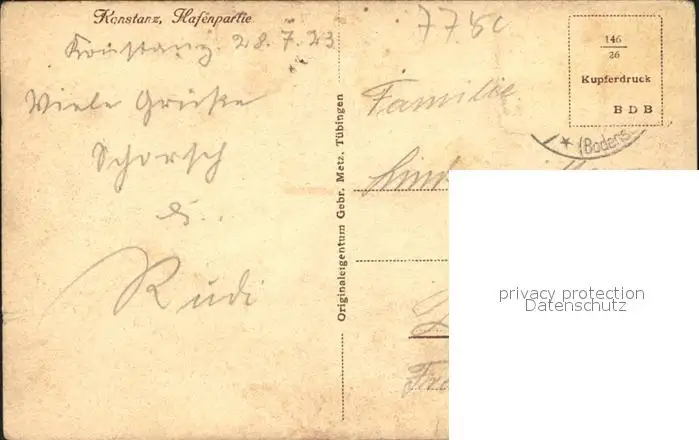 Konstanz, Hafenpartie
Konstanz. 28.7.23
Viele Grüße
Schorsch
&
Rudi
Originaleigentum Gebr. Metz, Tübingen
146
26
Kupferdruck
BDB
(Bodens
Familie
privacy protection
Datenschutz